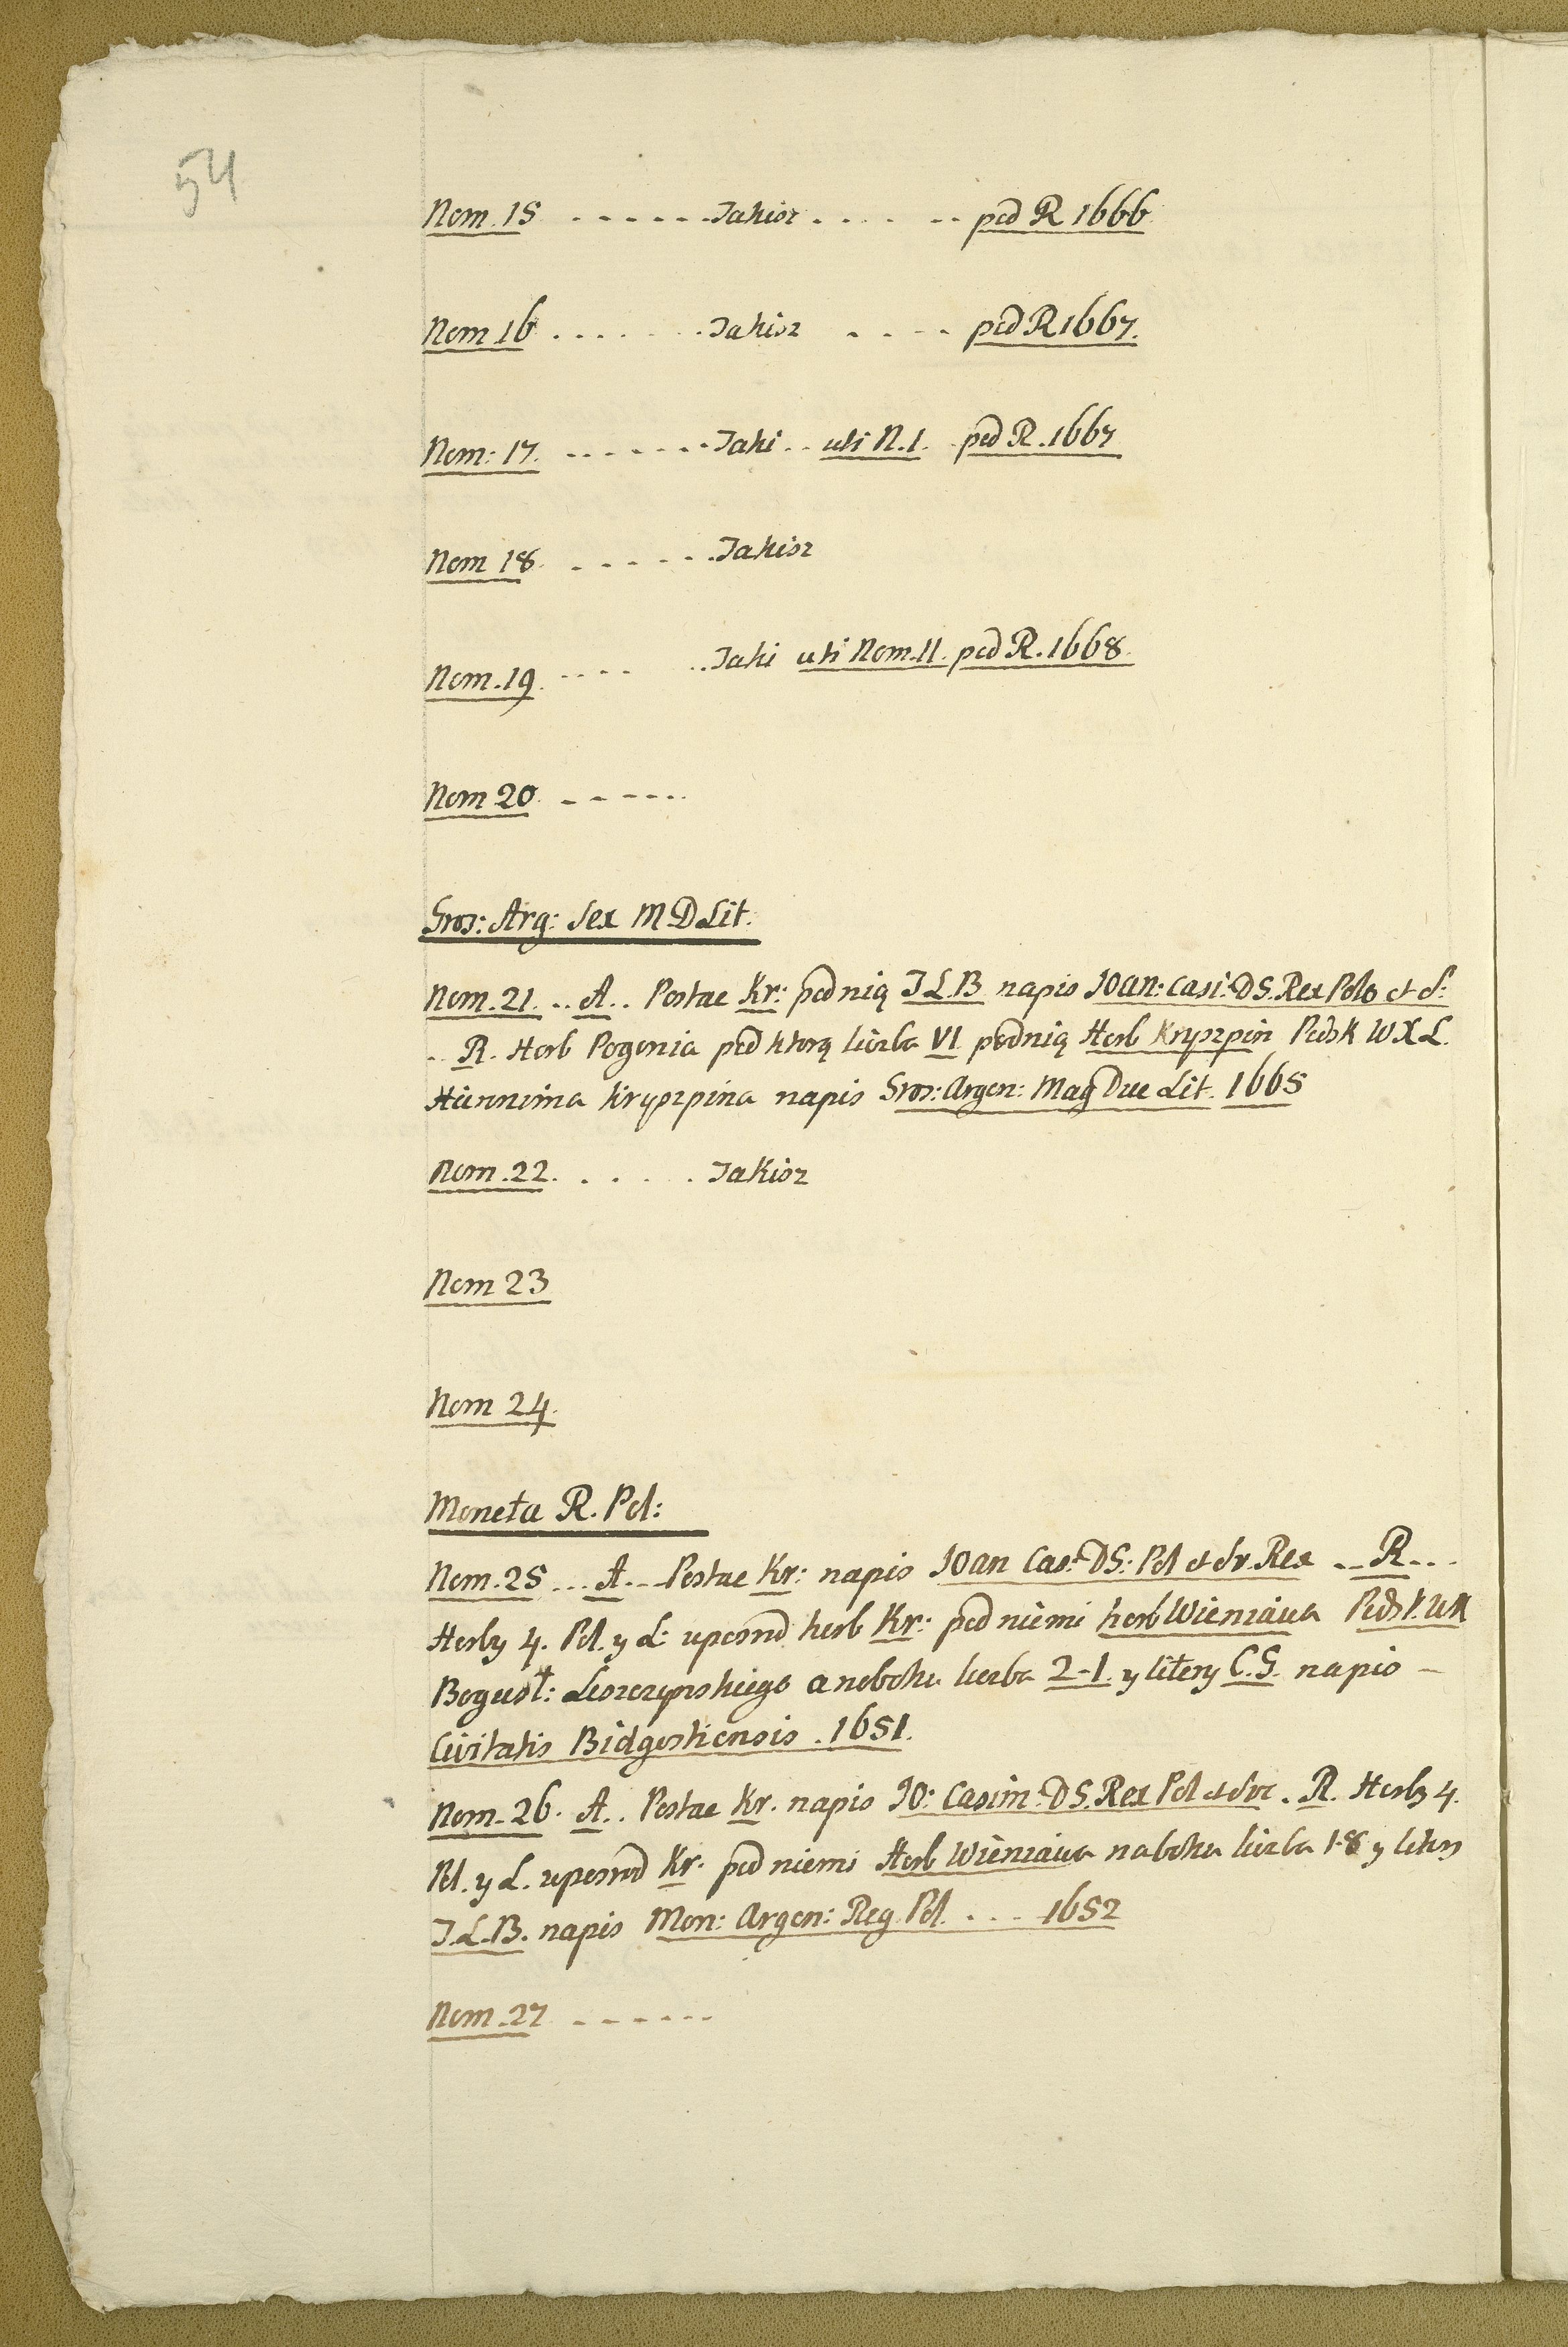 54
Nom. 15 ...... Jakisz ...... pod R 1666
Nom 16 ....... Jakisz .... pod R 1667.
Nom: 17. ...... Jaki .. uti N. 1. pod R. 1667
Nom 18 ...... Jakisz
Nom. 19. .... .. Jaki uti Nom. 11. pod R. 1668.
Nom 20 ......
Gros: Arg: Sex M D Lit.
Nom. 21. .. A. . Postac Kr: pod nią T L. B napis Ioan: Casi: D S. Rex Polo et S:
.. R. Herb Pogonia pod ktorą liczba VI pod nią Herb Kryszpin Podsk W X L.
Hieronima Kryszpina napis Gros: Argen: Mag Duc Lit. 1665
Nom. 22. . . . . Jakisz
Nom 23
Nom 24.
Moneta R. Pol:
Nom. 25 ... A. .. Postac Kr: napis Ioan Cas: D S: Pol et Sv. Rex .. R...
Herby 4. Pol. y L: uposrod herb Kr: pod niemi herb Wieniawa Podsk. WK
Bogusł: Leszczynskiego a neboku liczba 2-1. y litery C. G. napis -
Civitatis Bidgostiensis . 1651.
Nom. 26. A. . Postac Kr. napis Io: Casim: D S. Rex Pol et Svc . R. Herby 4.
Pol. y L. uposrod Kr. pod niemi Herb Wieniawa naboku liczba 1-8 y litery
J. L. B. napis Mon: Argen: Reg Pol. ... 1652
Nom. 27 ......